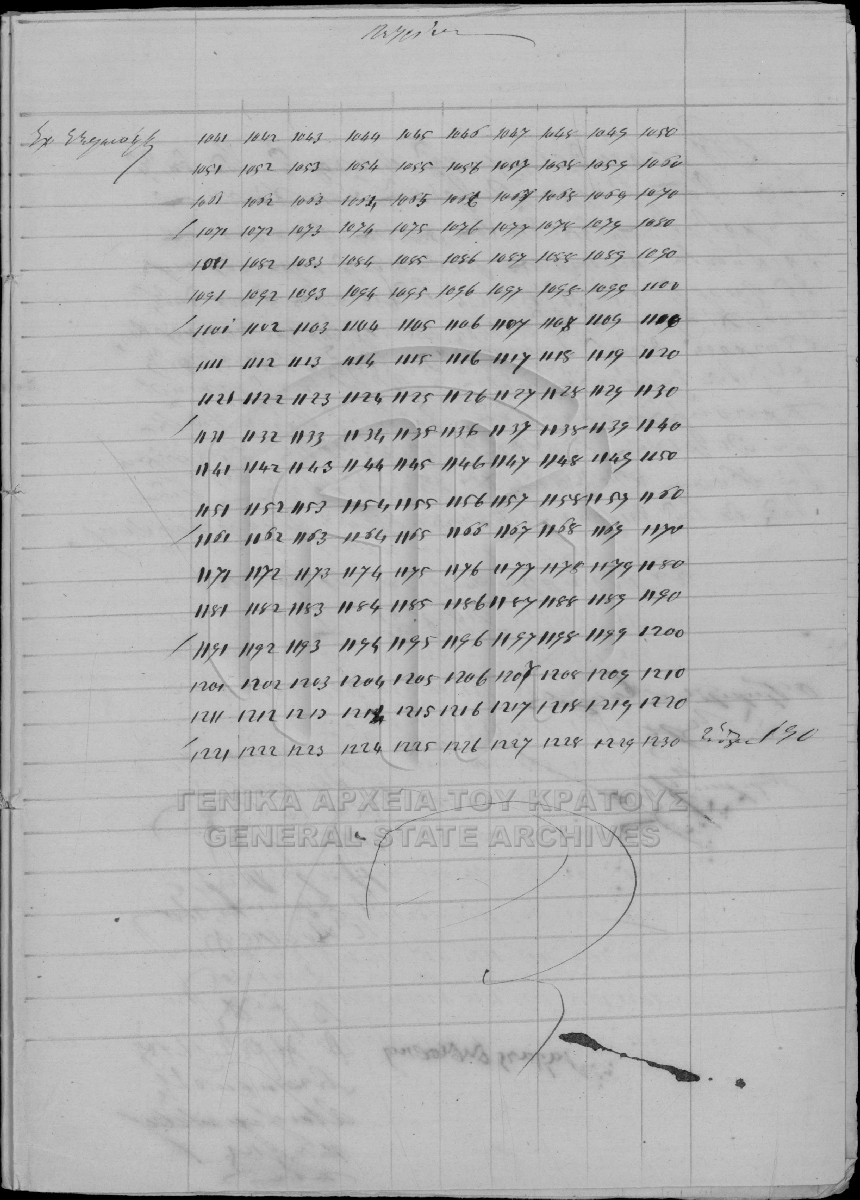 1041 1042 1043 1044 1045 1046 1047 1048 1049 1050
1051 1052 1053 1054 1055 1056 1057 1058 1059 1060
1061 1062 1063 1064 1065 1066 1067 1068 1069 1070
1071 1072 1073 1074 1075 1076 1077 1078 1079 1080
1081 1082 1083 1084 1085 1086 1087 1088 1089 1090
1091 1092 1093 1094 1095 1096 1097 1098 1099 1100
1101 1102 1103 1104 1105 1106 1107 1108 1109 1100
1111 1112 1113 1114 1115 1116 1117 1118 1119 1120
1121 1122 1123 1124 1125 1126 1127 1128 1129 1130
1131 1132 1133 1134 1135 1136 1137 1138 1139 1140
1141 1142 1143 1144 1145 1146 1147 1148 1149 1150
1151 1152 1153 1154 1155 1156 1157 1158 1159 1160
1161 1162 1163 1164 1165 1166 1167 1168 1169 1170
1171 1172 1173 1174 1175 1176 1177 1178 1179 1180
1181 1182 1183 1184 1185 1186 1187 1188 1189 1190
1191 1192 1193 1194 1195 1196 1197 1198 1199 1200
1201 1202 1203 1204 1205 1206 1207 1208 1209 1210
1211 1212 1213 1214 1215 1216 1217 1218 1219 1220
1221 1222 1223 1224 1225 1226 1227 1228 1229 1230 190
ΓΕΝΙΚΑ ΑΡΧΕΙΑ ΤΟΥ ΚΡΑΤΟΥΣ
GENERAL STATE ARCHIVES